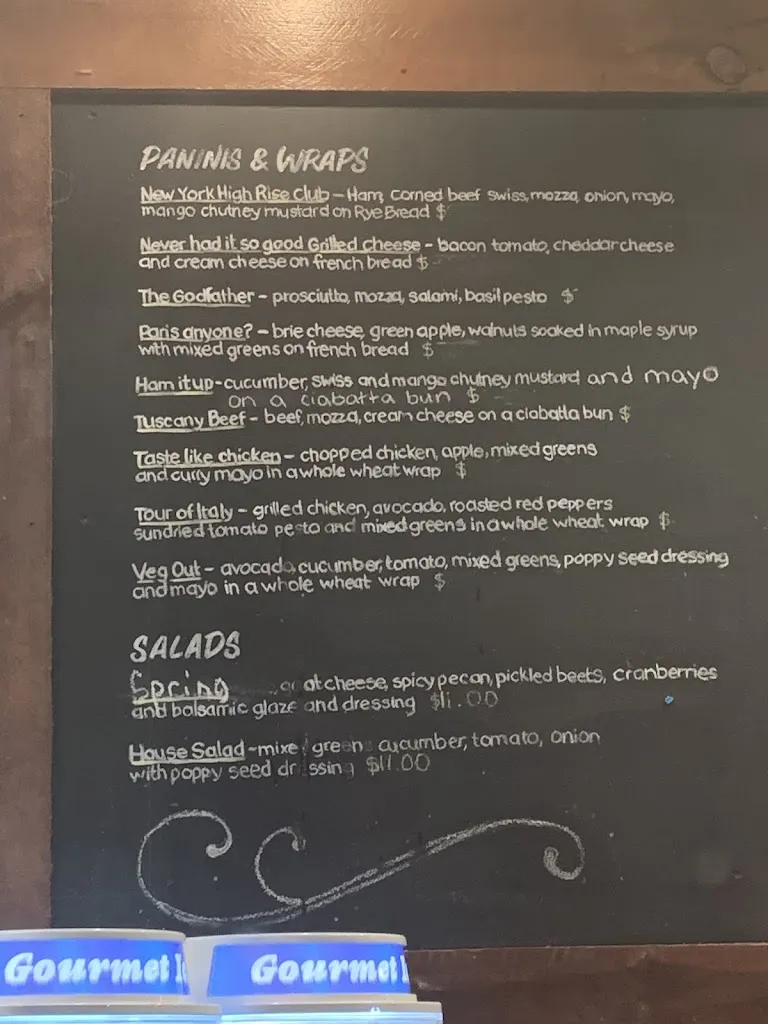 PANINIS & WRAPS
New York High Rise Club - Ham, corned beef swiss, mozza, onion, mayo,
mango chutney mustard on Rye Bread $
Never had it so good Grilled cheese - bacon tomato, cheddar cheese
and cream cheese on french bread $
The Godfather - prosciutto, mozza, salami, basil pesto $
Paris anyone? - brie cheese, green apple, walnuts soaked in maple syrup
with mixed greens on french bread $
Ham it up - cucumber, swiss and mango chutney mustard and mayo
on a ciabatta bun $
Tuscany Beef - beef, mozza, cream cheese on a ciabatta bun $
Taste like chicken - chopped chicken, apple, mixed greens
and curry mayo in a whole wheat wrap $
Tour of Italy - grilled chicken, avocado, roasted red peppers
sundried tomato pesto and mixed greens in a whole wheat wrap $
Veg Out - avocado, cucumber, tomato, mixed greens, poppy seed dressing
and mayo in a whole wheat wrap $
SALADS
Spring goat cheese, spicy pecan, pickled beets, cranberries
and balsamic glaze and dressing $11.00
House Salad - mixe green cucumber, tomato, onion
with poppy seed dressing $11.00
Gourmet Gourmet